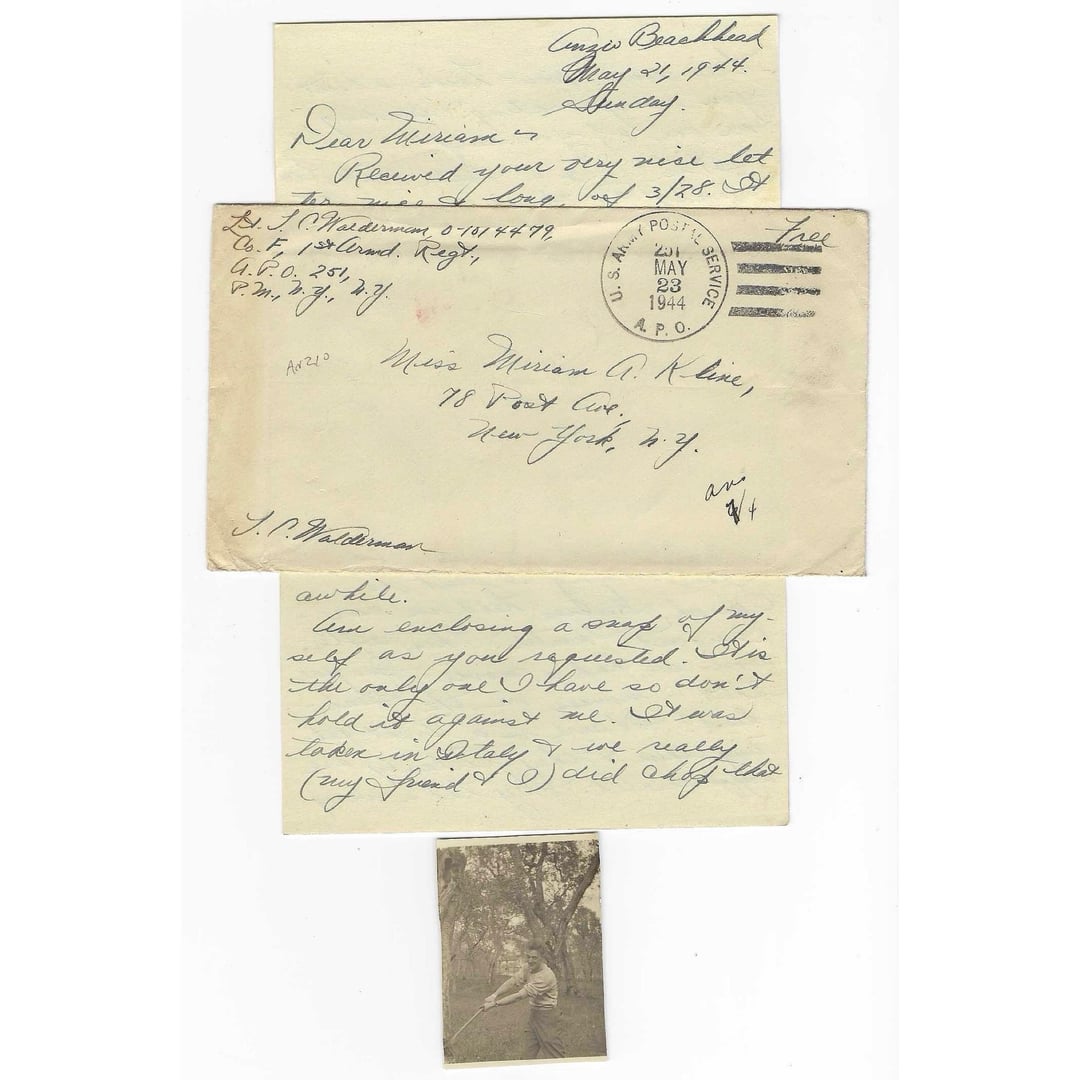 Anzio Beachhead
May 21, 1944.
Sunday.
Dear Miriam ~
Received your very nice let
ter, nice & long, of 3/28. It
Lt. S. C. Walderman, O-1014479,
Co. F, 1st Armd. Regt.,
A.P.O. 251,
P.M., N.Y., N.Y.
U.S. ARMY POSTAL SERVICE
251
MAY
23
1944
A.P.O.
Free
Anzio
Miss Miriam A. Kline,
78 Post Ave.,
New York, N.Y.
ans
/4
S. C. Walderman
awhile.
Am enclosing a snap of my-
self as you requested. It is
the only one I have so don't
hold it against me. It was
taken in Italy & we really
(my friend & I) did chop that